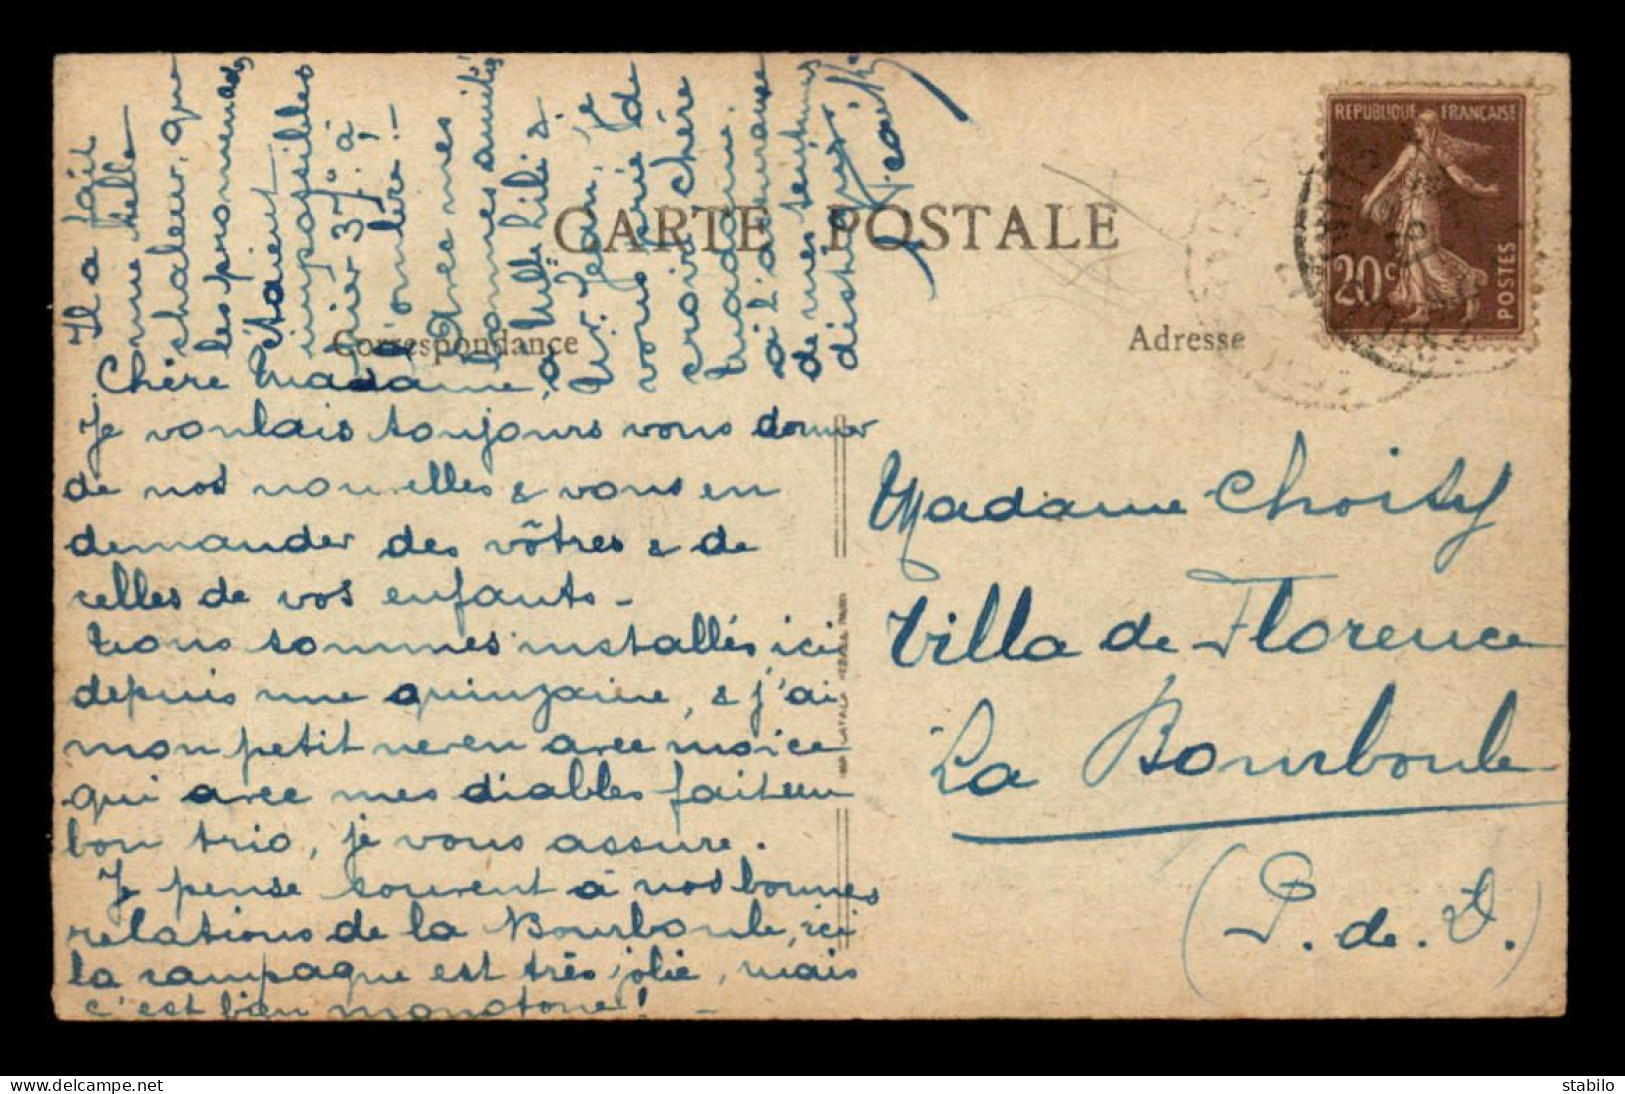 CARTE POSTALE
Correspondance
Adresse
REPUBLIQUE FRANÇAISE
20c
POSTES
Chère Madame,
Je voulais toujours vous donner
de nos nouvelles & vous en
demander des vôtres & de
celles de vos enfants –
Nous sommes installés ici
depuis une quinzaine, & j'ai
mon petit neveu avec moi ce
qui avec mes diables fait un
bon trio, je vous assure.
Je pense souvent à nos bonnes
relations de la Bourboule, ici
la campagne est très jolie, mais
c'est bien monotone! –
Il a fait
une telle
chaleur, que
les promenades
étaient
impossibles
hier 37° à
l'ombre! –
Avec mes
bonnes amitiés
à Mlle &
Mr. Jean, je
vous prie de
croire chère
Madame
à l'assurance
de mes sentiments
distingués
Madame Choisy
Villa de Florence
La Bourboule
(P. de. D.)
LAVAL
stabilo